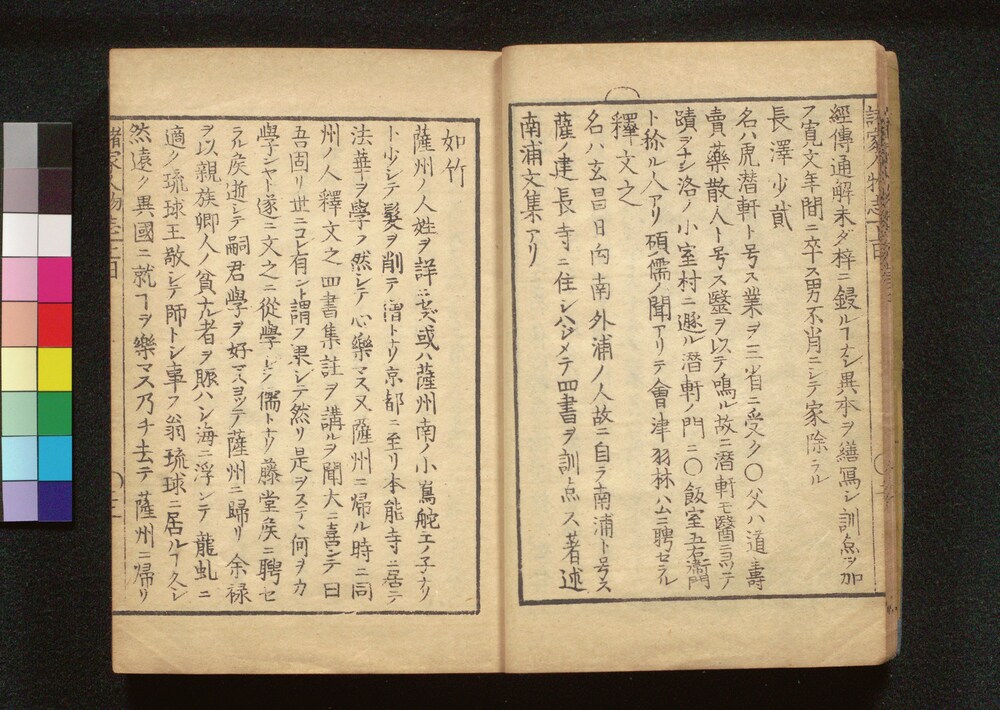 經傳通解未ダ梓ニ鋟ルヿナシ異本ヲ繕寫シ訓点ヲ加
ス寛文年間ニ卒ス男不肖ニシテ家除ラル
長澤少貳
名ハ虎潜軒ト号ス業ヲ三省ニ受ク〇父ハ道壽
賣藥散人ト号ス醫ヲ以テ鳴ル故ニ潜軒モ醫ニヨツテ
蹟ヲナシ洛ノ小室村ニ遯ル潜軒ノ門ニ〇飯室五右衛門
ト徐ル人アリ碩儒ノ聞アリテ會津羽林ハムニ聘セラル
釋文之
名ハ玄昌日向南外浦ノ人故ニ自ラ南浦ト号ス
薩ノ建長寺ニ住シハジメテ四書ヲ訓点ス著述
南浦文集アリ
如竹
薩州ノ人姓ヲ詳ニセズ或ハ薩州南ノ小嶌舵工ノ子ナリ
ト少シテ髪ヲ削テ僧トナリ京都ニ至リ本能寺ニ居テ
法華ヲ學フ然シテ心樂マス又薩州ニ帰ル時ニ同
州ノ人釋文之四書集註ヲ講ルヲ聞大ニ喜シテ曰
吾固リ世ニコレ有ント謂フ果シテ然リ是ヲステ何ヲカ
學シヤト遂ニ文之ニ從學シ儒トナリ藤堂矦ニ聘セ
ラル矦逝シテ嗣君學ヲ好マスヨツテ薩州ニ帰リ余禄
ヲ以親族郷人ノ貧亢者ヲ賑ハシ海ニ浮ンテ龍虬ニ
適ク琉球王敬シテ師トシ事フ翁琉球ニ居ルヿ久シ
然遠ク異國ニ就ヿヲ樂マス乃チ去テ薩州ニ帰リ
諸家人物志上